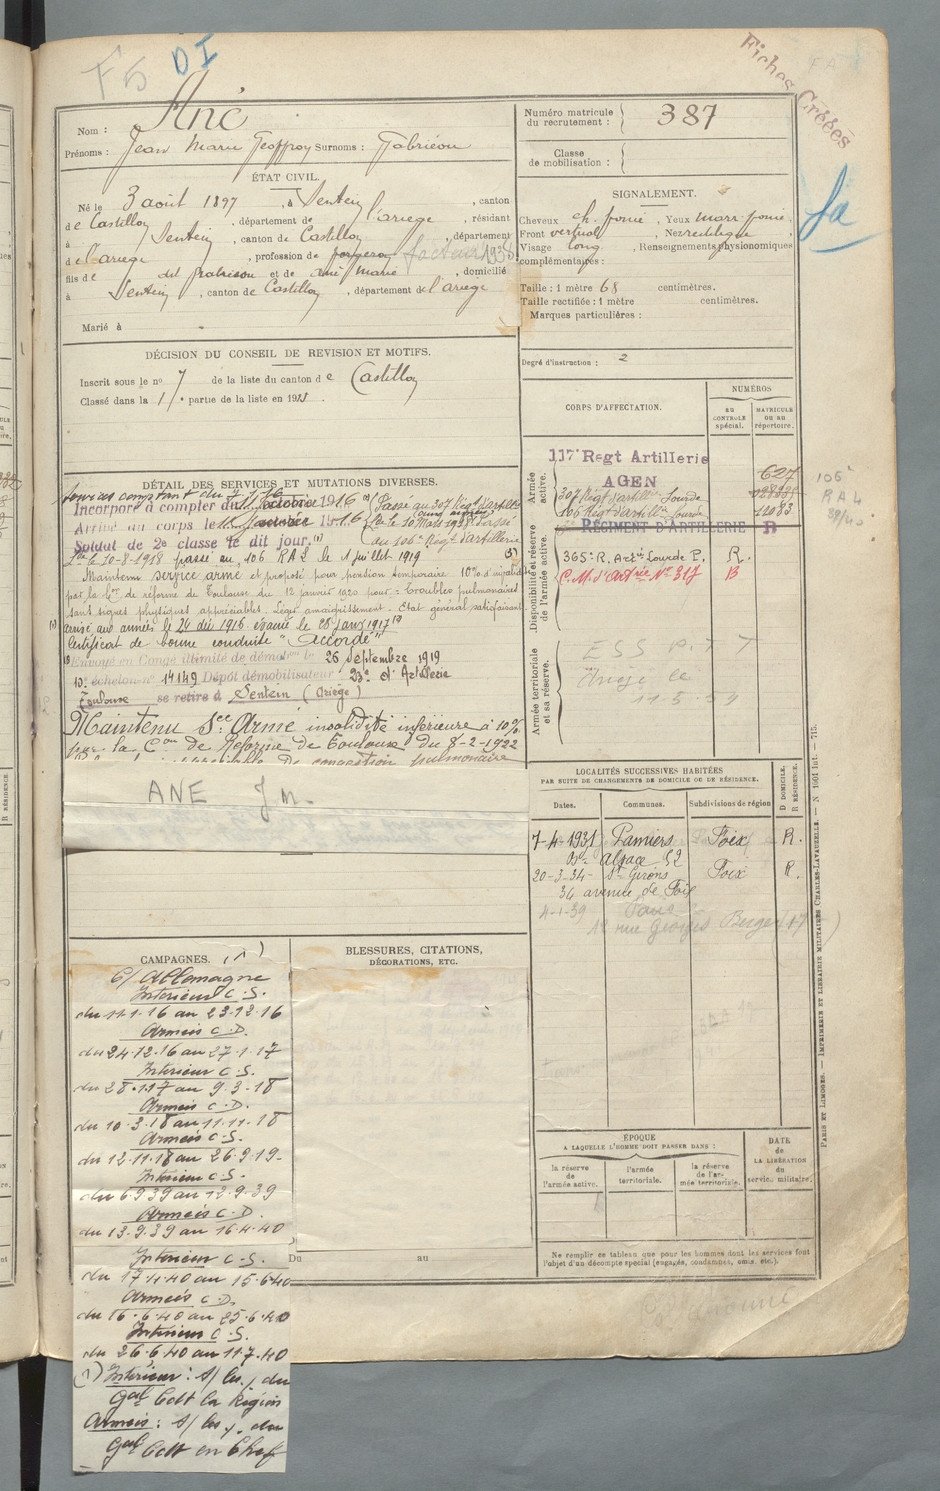 F5 DI
Fiches Créées
Nom : Ané
Prénoms : Jean Marie Geoffroy Surnoms :
ÉTAT CIVIL.
Né le 3 août 1897 , à Sentein , canton
de Castillon , département de l'ariege , résidant
à Sentein , canton de Castillon , département
de l'ariege , profession de forgeron facteur 1938
fils de et de ané marie , domicilié
à Sentein , canton de Castillon , département de l'ariege
Marié à
DÉCISION DU CONSEIL DE REVISION ET MOTIFS.
Inscrit sous le no 7 de la liste du canton de Castillon
Classé dans la 1re partie de la liste en 191
Numéro matricule
du recrutement : 387
Classe
de mobilisation :
SIGNALEMENT.
Cheveux ch. foncé , Yeux marr foncé ,
Front vertical , Nez rectiligne ,
Visage long , Renseignements physionomiques
complémentaires :
Taille : 1 mètre 68 centimètres.
Taille rectifiée : 1 mètre centimètres.
Marques particulières :
Degré d'instruction : 2
CORPS D'AFFECTATION.
NUMÉROS
AU CONTROLE spécial.
MATRICULE OU AU répertoire.
Armée active.
117e Regt Artillerie 627
AGEN
307 Régt d'artillie Lourde
106 Régt d'artillie Lourde 12083
106e
RAL
DÉTAIL DES SERVICES ET MUTATIONS DIVERSES.
Services comptant du
Incorporé à compter du 1916 Passé au 307 Régt d'artillie
Arrivé au corps le 1916 le 10 Mars 1918 Passé
Soldat de 2e classe le dit jour. au 106e Régt d'artillerie
Lde le 20-8-1918 passé au 106 RAL le 1 juillet 1919
Maintenu service armé et proposé pour pension temporaire 10% d'invalidité
par la Con de réforme de Toulouse du 12 janvier 1920 pour : Troubles pulmonaires
sans signes physiques appréciables. Léger amaigrissement. Etat général satisfaisant
arrivé aux armées le 24 déc 1916 évacué le 28 janv 1917
Certificat de bonne conduite "Accordé"
Envoyé en Congé illimité de démobon le 26 Septembre 1919
10e échelon no 14149 Dépôt démobilisateur 23e d'Artillerie
Toulouse se retire à Sentein (Ariège)
Maintenu Sce Armé invalidité inférieure à 10%
par la Con de Réforme de Toulouse du 8-2-1922
de congestion pulmonaire
RÉGIMENT D'ARTILLERIE R
Disponibilité et réserve de l'armée active.
365e R. Arie Lourde P. R.
C.M. d'Artrie No 317 B
Armée territoriale et sa réserve.
ESS P.T.T
ANE J M.
LOCALITÉS SUCCESSIVES HABITÉES
PAR SUITE DE CHANGEMENTS DE DOMICILE OU DE RÉSIDENCE.
Dates. Communes. Subdivisions de région D DOMICILE, R RÉSIDENCE.
7-4-1931 Pamiers Foix R.
Bd Alsace 52
20-3-34- St Girons Foix R.
34 avenue de Foix
4-1-39
12 rue Georges Berger (17)
CAMPAGNES. (1)
C/ Allemagne
Interieur C.S.
du 11.1.16 au 23.12.16
Armées C.D.
du 24.12.16 au 27.1.17
Interieur C.S.
du 28.1.17 au 9.3.18
Armées C.D.
du 10.3.18 au 11.11.18
Armées C.S.
du 12.11.18 au 26.9.19.
Interieur C.S.
du 6.9.39 au 12.9.39
Armées C.D.
du 13.9.39 au 16.4.40
Interieur C.S.
du 17.4.40 au 15.6.40
Armées C.D.
du 16.6.40 au 25.6.40
Interieur C.S.
du 26.6.40 au 11.7.40
(1) Interieur : S/ les y du
Gal Cdt la Région
Armées : S/ les y. du
Gal Cdt en Chef
BLESSURES, CITATIONS,
DÉCORATIONS, ETC.
Du au
ÉPOQUE
A LAQUELLE L'HOMME DOIT PASSER DANS :
la réserve de l'armée active.
l'armée territoriale.
la réserve de l'armée territoriale.
DATE
de
LA LIBÉRATION
du
service militaire.
Ne remplir ce tableau que pour les hommes dont les services font
l'objet d'un décompte spécial (engagés, condamnés, omis, etc.).
PARIS ET LIMOGES. — IMPRIMERIE ET LIBRAIRIE MILITAIRES CHARLES-LAVAUZELLE.